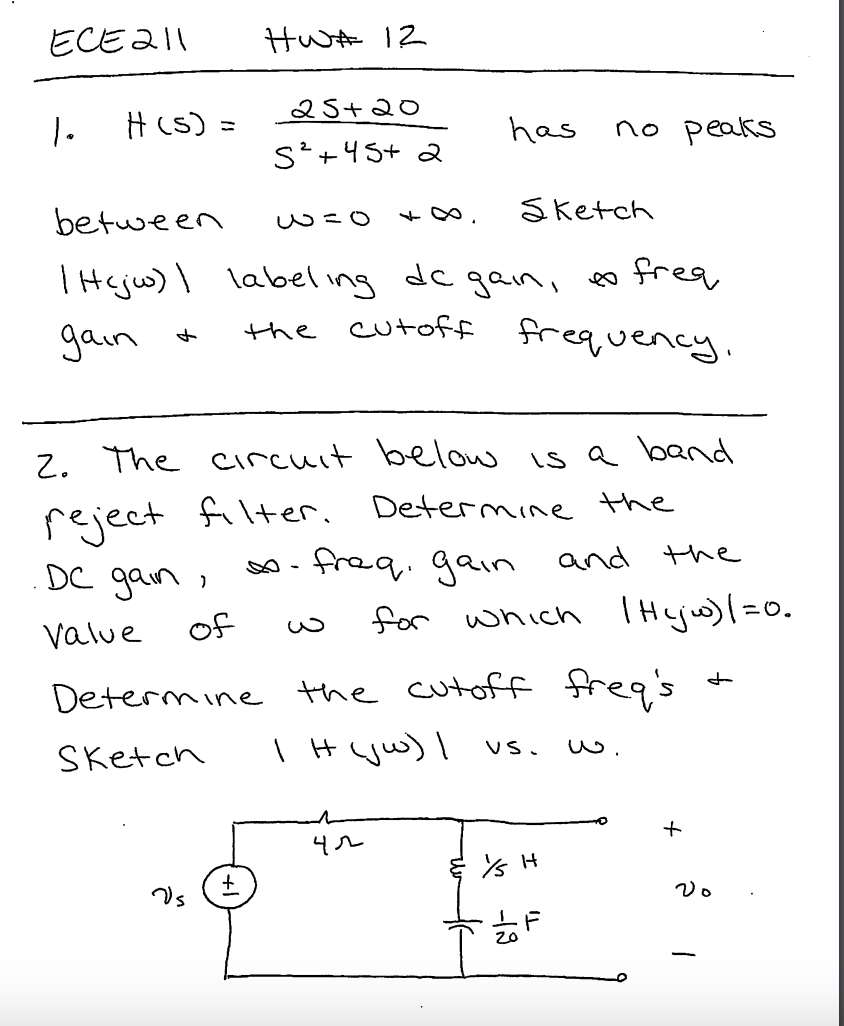 ECE211 HW# 12
1. H(s) = (2s+20)/(s²+4s+2) has no peaks
between ω=0 + ∞. Sketch
|H(jω)| labeling dc gain, ∞ freq
gain + the cutoff frequency.
2. The circuit below is a band
reject filter. Determine the
DC gain, ∞-freq. gain and the
value of ω for which |H(jω)|=0.
Determine the cutoff freq's +
Sketch |H(jω)| vs. ω.
4Ω
+
⅕ H
vs
+
−
vo
1/20 F
−